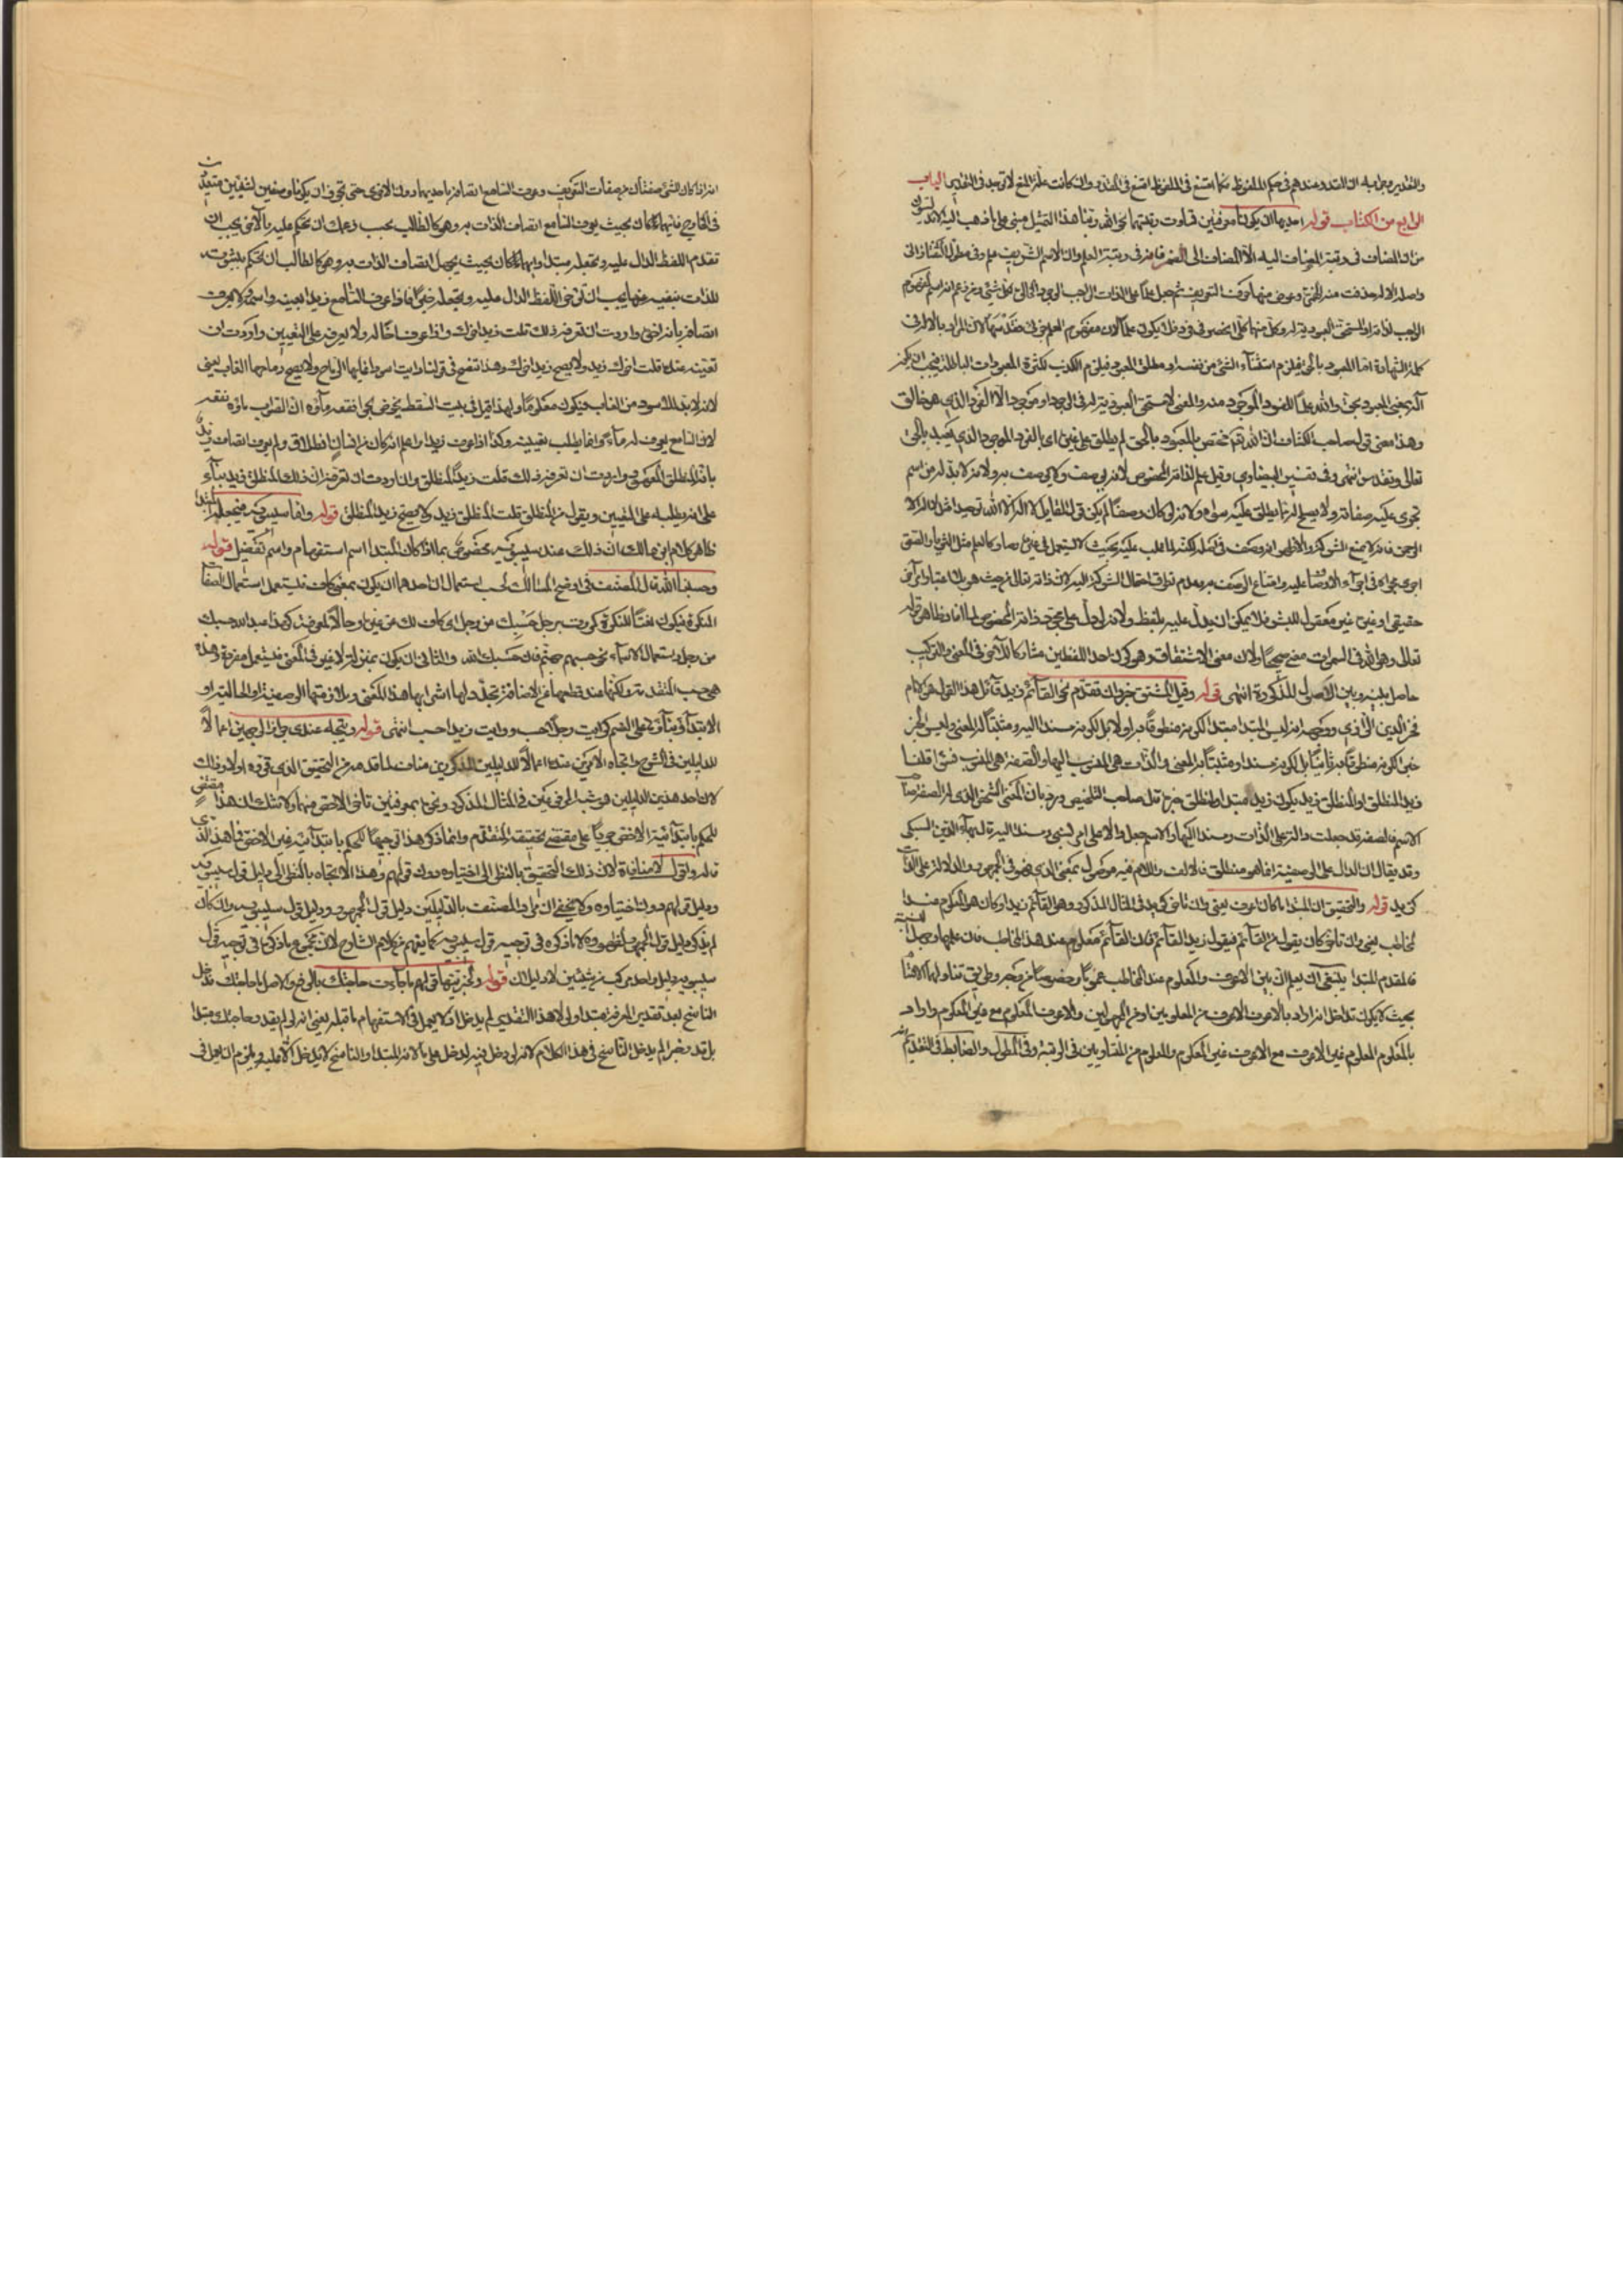 والتقدير وجوابه ان المقدر عندهم في حكم الملفوظ فكما امتنع في الملفوظ امتنع في المقدر وان كانت علة المنع لا توجد في التقدير الباب
الرابع من الكتاب قوله احديهما ان يكونا معرفتين تساوت رتبتهما نحو الله ربنا هذا التمثيل مبني على ما ذهب اليه
من ان المضاف في رتبة المضاف اليه الا المضاف الى الضمير فانه في رتبة العلم وان الاسم الشريف علم وفي مطول التفتازاني
واصله الاله حذفت منه الهمزة وعوض منها حرف التعريف ثم جعل علما على الذات الواجب الوجود الخالق لكل شيء ومن زعم انه اسم لمفهوم
الواجب لذاته او المستحق للعبودية له وكل منهما كلي انحصر في فرد فلا يكون علما لان مفهوم العلم جزئي فقد سها لان المراد بالاله في
كلمة الشهادة اما المعبود بالحق فيلزم استثناء الشيء من نفسه او مطلق المعبود فيلزم الكذب لكثرة المعبودات الباطلة فيجب ان يكون
اله بمعنى المعبود بحق والله علما للفرد الموجود منه والمعنى لا مستحق للعبودية له في الوجود او موجود الا الفرد الذي هو خالق
وهذا معنى قول صاحب الكشاف ان الله تعم مختص بالمعبود بالحق لم يطلق على غيره اى بالفرد الموجود الذي يعبد بالحق
تعالى وتقدس انتهى وفي تفسير البيضاوي وقيل علم لذاته المخصوص لانه يوصف ولا يوصف به ولانه لا بد له من اسم
تجري عليه صفاته ولا يصلح له مما يطلق عليه سواه ولانه لو كان وصفا لم يكن قول القايل لا اله الا الله توحيدا مثل لا اله الا
الرحمن فانه لا يمنع الشركة والاظهر انه وصف في اصله لكنه لما غلب عليه بحيث لا يستعمل في غيره وصار كالعلم مثل الثريا والصعق
اجري مجراه في اجراء الاوصاف عليه وامتناع الوصف به وعدم تطرق احتمال الشركة اليه لان ذاته تعالى من حيث هو بلا اعتبار امر آخر
حقيقي او غيره غير معقول للبشر فلا يمكن ان يدل عليه بلفظ ولانه لو دل على مجرد ذاته المخصوص لما افاد ظاهر قوله
تعالى وهو الله في السموات معنى صحيحا ولان معنى الاشتقاق وهو كون احد اللفظين مشاركا للآخر في المعنى والتركيب
حاصل بينه وبين الاصول المذكورة انتهى قوله وقيل المشتق خبر وان تقدم نحو القائم زيد قائل هذا القول هو الامام
فخر الدين الرازي ووجهه انه ليس المبتدا مبتدا لكونه منطوقا به اولا بل لكونه مسندا اليه ومثبتا له المعنى وليس الخبر
خبرا لكونه منطوقا به ثانيا بل لكونه مسندا ومثبتا به المعنى والذات هي المنسوب اليها والصفة هي المنسوب فسواء قلنا
زيد المنطلق او المنطلق زيد يكون زيد مبتدا والمنطلق خبرا قال صاحب التلخيص ورد بان المعنى الشخص الذي له الصفة صاحب
الاسم فالصفة قد جعلت دالة على الذات ومسندا اليها والاسم جعل دالا على امر نسبي ومسندا اليه لبهاء الدين السبكي
وقد يقال ان الدال على الوصفية انما هو منطلق فلا لات واللام فيه موصول بمعنى الذي
كزيد قوله والتحقيق ان المبتدا ما كان اعرف يعني وان تاخر كزيد في المثال المذكور وهو القائم زيد او كان هو المعلوم عند
المخاطب يعني وان تاخر كان يقول من القائم فيقول زيد القائم فان القائم معلوم عند هذا المخاطب فان علمهما وجهل النسبة
فالمقدم المبتدا ينبغي ان يعلم ان بين الاعرف والمعلوم عند المخاطب عموما وخصوصا من وجه وطريق تناولهما الاقتسام
بحيث لا يكون تداخل انه اراد بالاعرف الاعرف من المعلومين او من المجهولين والاعرف المعلوم مع غير المعلوم واراد
بالمعلوم المعلوم غير الاعرف مع الاعرف غير المعلوم والمعلوم من المتساويين في الرتبة وفي المطول والضابط في التقديم
انه اذا كان للشيء صفتان من صفات التعريف وعرف السامع اتصافه باحديهما دون الاخرى حتى يجوز ان يكونا وصفين لشيئين متعددين
في الخارج فايهما كان بحيث يعرف السامع اتصاف الذات به وهو كالطالب بحسب زعمك ان تحكم عليه بالآخر يجب ان
تقدم اللفظ الدال عليه وتجعله مبتدا وايهما كان بحيث يجهل اتصاف الذات به وهو كالطالب ان تحكم بثبوته
للذات بنفيه عنها يجب ان تؤخر اللفظ الدال عليه وتجعله خبرا فاذا عرف السامع زيدا بعينه واسمه ولا يعرف
اتصافه بانه اخوه واردت ان تعرفه ذلك قلت زيد اخوك واذا عرف اخا له ولا يعرفه على التعيين واردت ان
تعينه عنده قلت اخوك زيد ولا يصح زيد اخوك وهذا يتضح في قولنا رايت اسودا غابها الرماح ولا يصح رماحها الغاب يعني
لانه لا بد للاسود من الغاب فيكون معلوما ولهذا قيل في بيت السقط يخوض بحرا نقعه ماؤه ان الصواب ماؤه نقعه
لان السامع يعرف له ماء وانما يطلب تعيينه وكذا اذا عرف زيدا وعلم انه كان من انسان انطلاق ولم يعرف اتصاف زيد
بانه المنطلق المعهود واردت ان تعرفه ذلك قلت زيد المنطلق وان اردت ان تعرفه ان ذلك المنطلق زيد بناء
على انه يطلبه على التعيين ويقول من المنطلق قلت المنطلق زيد ولا يصح زيد المنطلق قوله واما سيبويه فيجعله المبتدا
ظاهر كلام ابن مالك ان ذلك عند سيبويه مخصوص بما اذا كان المبتدا اسم استفهام واسم تفضيل قوله
وحسبنا الله قال المصنف في اوضح المسالك لحسب استعمالان احدهما ان يكون بمعنى كاف فتستعمل استعمال الصفات
النكرة فيكون نعتا للنكرة كمررت برجل حسبك من رجل اى كاف لك عن غيره وحالا للمعرفة كهذا عبد الله حسبك
من رجل ويستعمل استعمال الاسماء نحو حسبهم جهنم فان حسبك الله والثاني ان يكون بمنزلة لا غير في المعنى فتستعمل مفردة وهذه
هي حسب المتقدمة ولكنها عند قطعها عن الاضافة تجدد لها اشرابها هذا المعنى وملازمتها الوصفية او الحالية او
الابتداء وبناؤها على الضم كرايت رجلا حسب ورايت زيدا حسب انتهى قوله ويتجه عندي جواز الوجهين اعمالا
للدليلين في الشرح واتجاه الامرين عنده اعمالا للدليلين المذكورين مناف لما قدمه من التحقيق الذي قرره اولا وذلك
لان احد هذين الدليلين
للحكم بابتدائية الاخص جريا على مقتضى تحقيقه المتقدم وانما ذكر هذا توجيها للحكم بابتدائية غير الاخص فاهذ الذي
قاله واقول لا منافاة لان ذلك التحقيق بالنظر الى اختياره دون قولهم وهذا الاتجاه بالنظر الى دليل قول سيبويه
ودليل قولهم دون اختياره ولا يخفى ان مراد المصنف بالدليلين دليل قول الجمهور ودليل قول سيبويه وان كان
لم يذكر دليل قول الجمهور لظهوره لا ما ذكره في توجيه قول سيبويه كما يفهم من كلام الشارح لان مجموع ما ذكر في توجيه قول
سيبويه دليل واحد مركب من شيئين لا دليلان قوله والخبر نحو قولهم ما جاءت حاجتك بالرفع والاصل ما حاجتك فدخل
الناسخ بعد تقدير المعرفة مبتدا ولولا هذا التقدير لم يدخل اذ لا يعمل في الاستفهام ما قبله يعني انه لو لم يقدر حاجتك مبتدا
بل قدر خبرا لم يدخل الناسخ في هذا الكلام لانه لو دخل فيه لدخل على ما لانه المبتدا والناسخ لا يدخل الا عليه ويلزم ان يعمل في